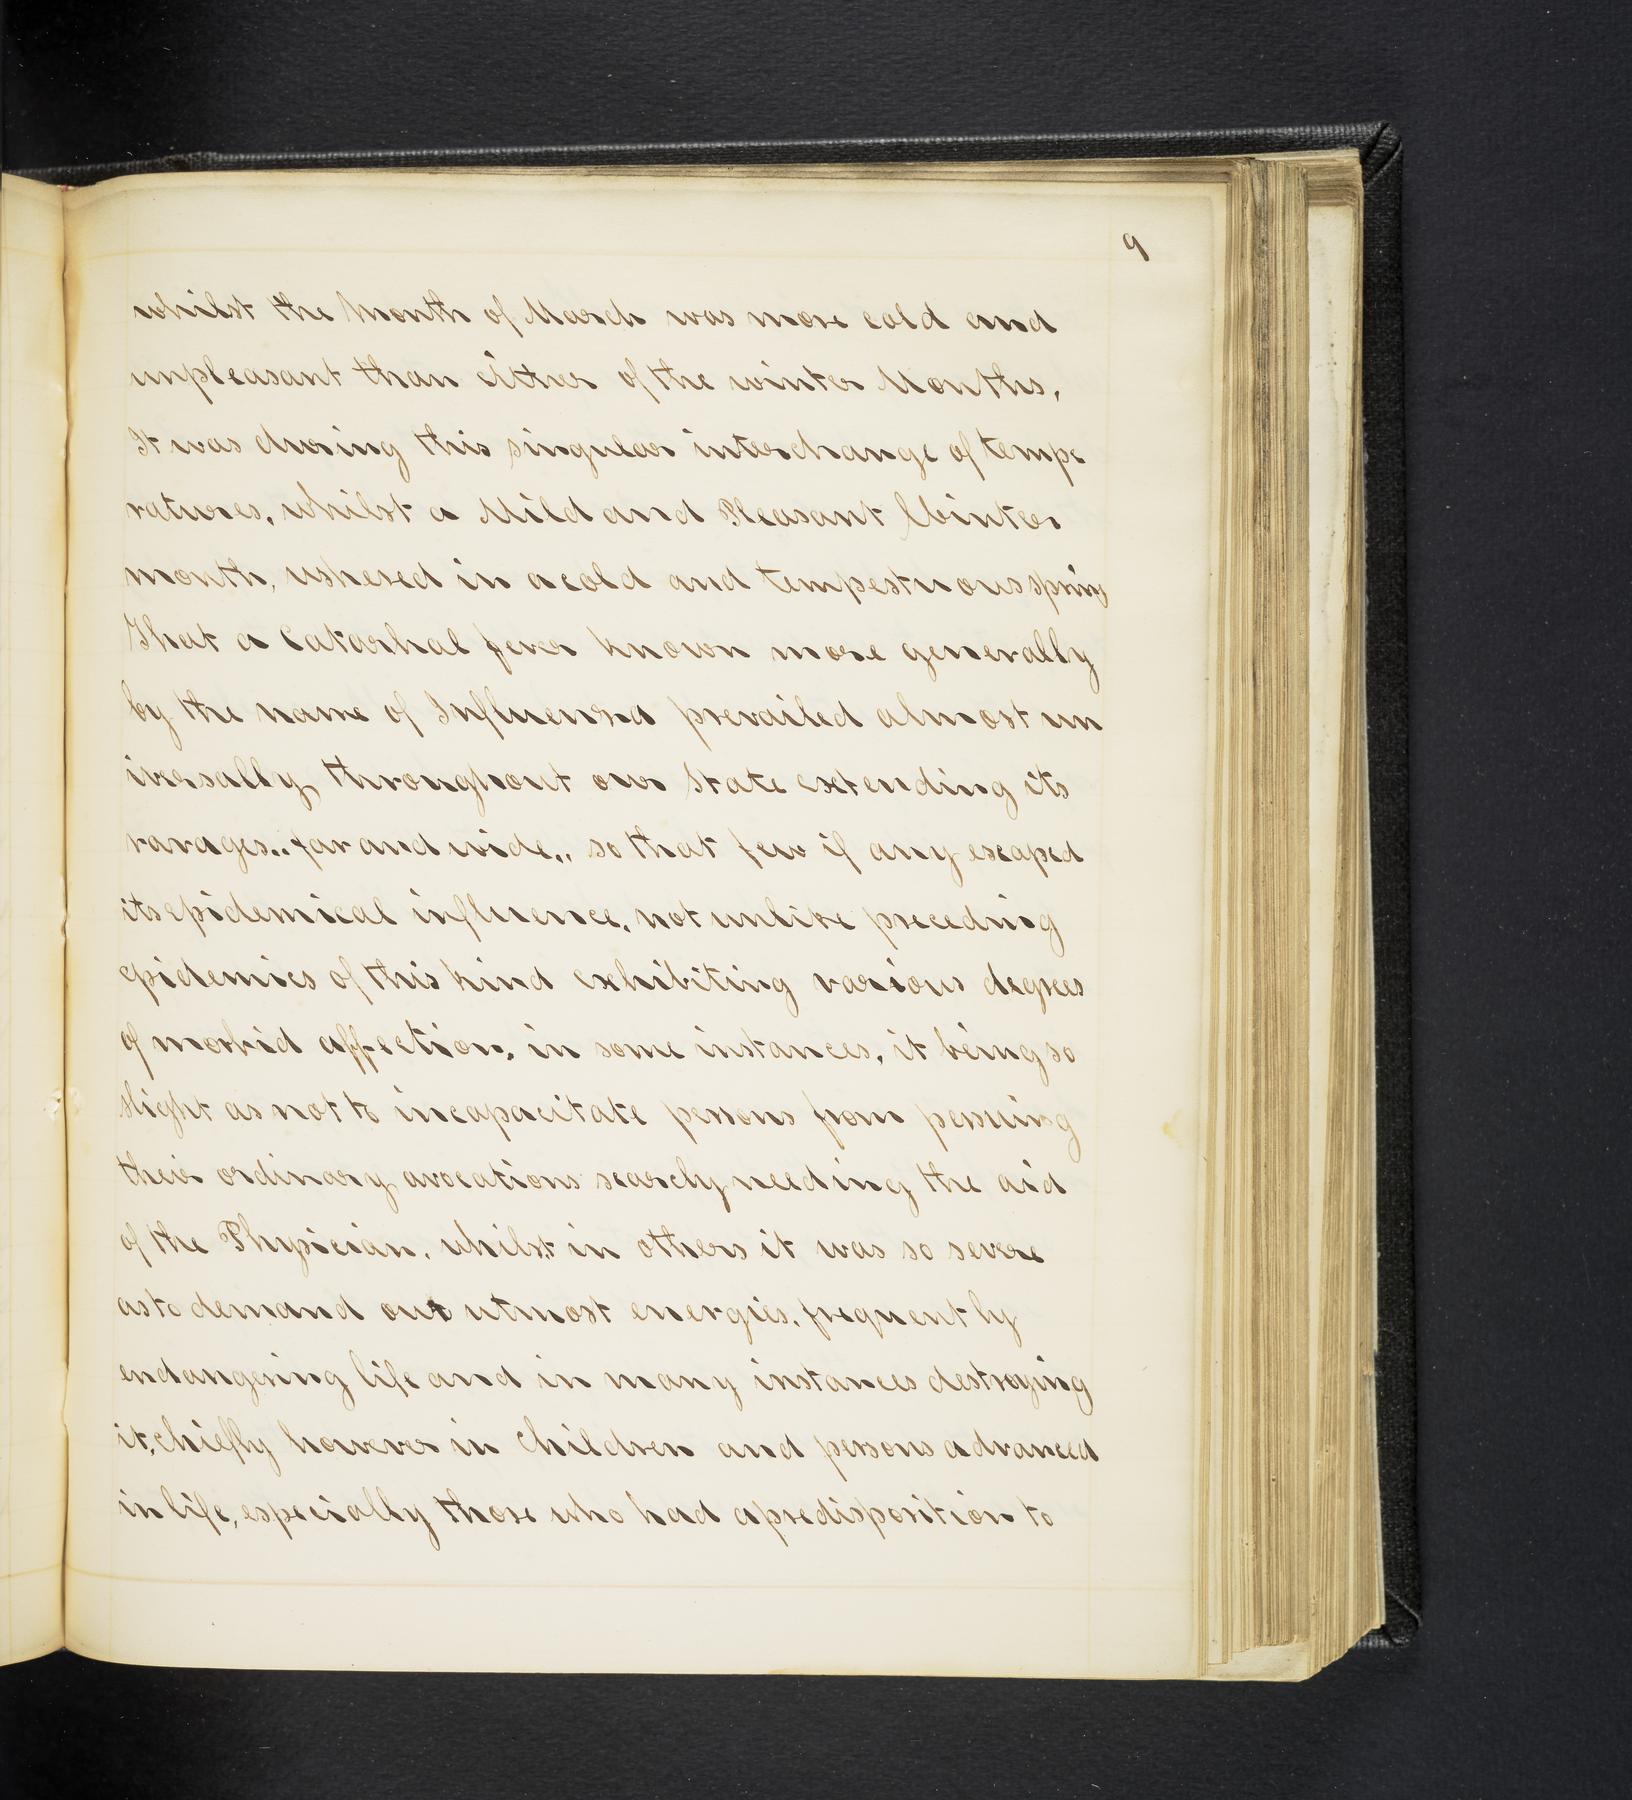 9
whilst the Month of March was more cold and
unpleasant than either of the winter Months,
It was during this singular interchange of tempe
ratures, whilst a Mild and Pleasant Winter
month, ushered in a cold and tempestuous spring
That a Catarhal fever known more generally
by the name of Influenza prevailed almost un
iversally throughout our State extending its
ravages,, far and wide,, so that few if any escaped
its epidemical influence, not unlike preceding
epidemics of this kind exhibiting various degrees
of morbid affection, in some instances, it being so
slight as not to incapacitate persons from persuing
their ordinary avocations scarcly needing the aid
of the Physician, whilst in others it was so severe
as to demand out utmost energies, frequently
endangering life and in many instances destroying
it, chiefly however in Children and persons advanced
in life, especially those who had a predisposition to